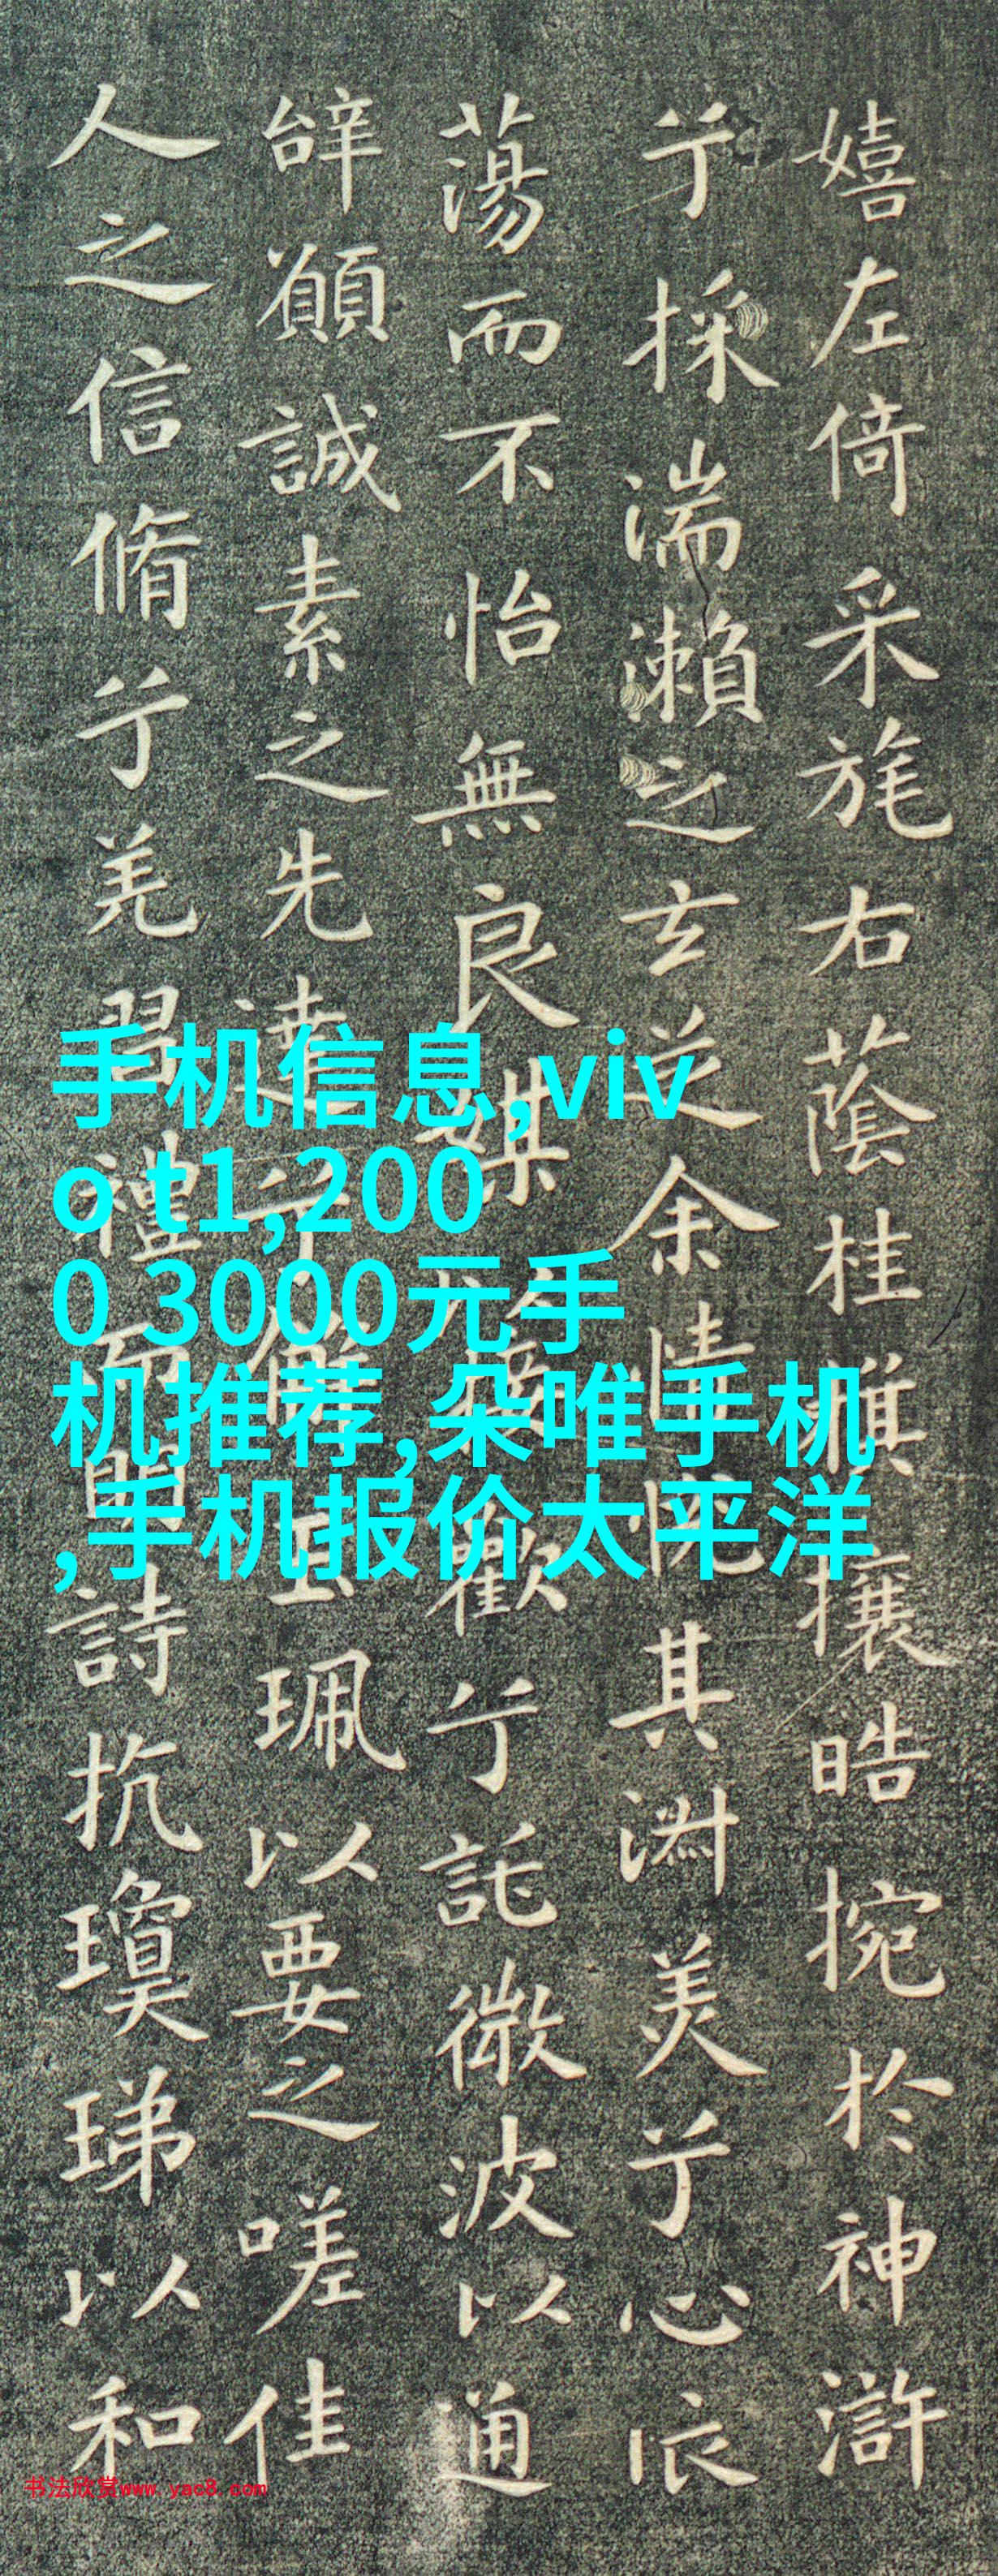 嬉左倚采旄右蔭桂旗攘皓捥於神滸
兮採湍瀨之玄芝余情悅其淑美兮心
蕩而不怡無良媒以接歡兮託微波以通
辭願誠素之先達兮解玉珮以要之嗟佳
人之信脩兮羌習禮而明詩抗瓊珶以和
手机信息,viv
o t1,200
0 3000元手
机推荐,朵唯手机
,手机报价太平洋
书法欣赏www.yac8.com